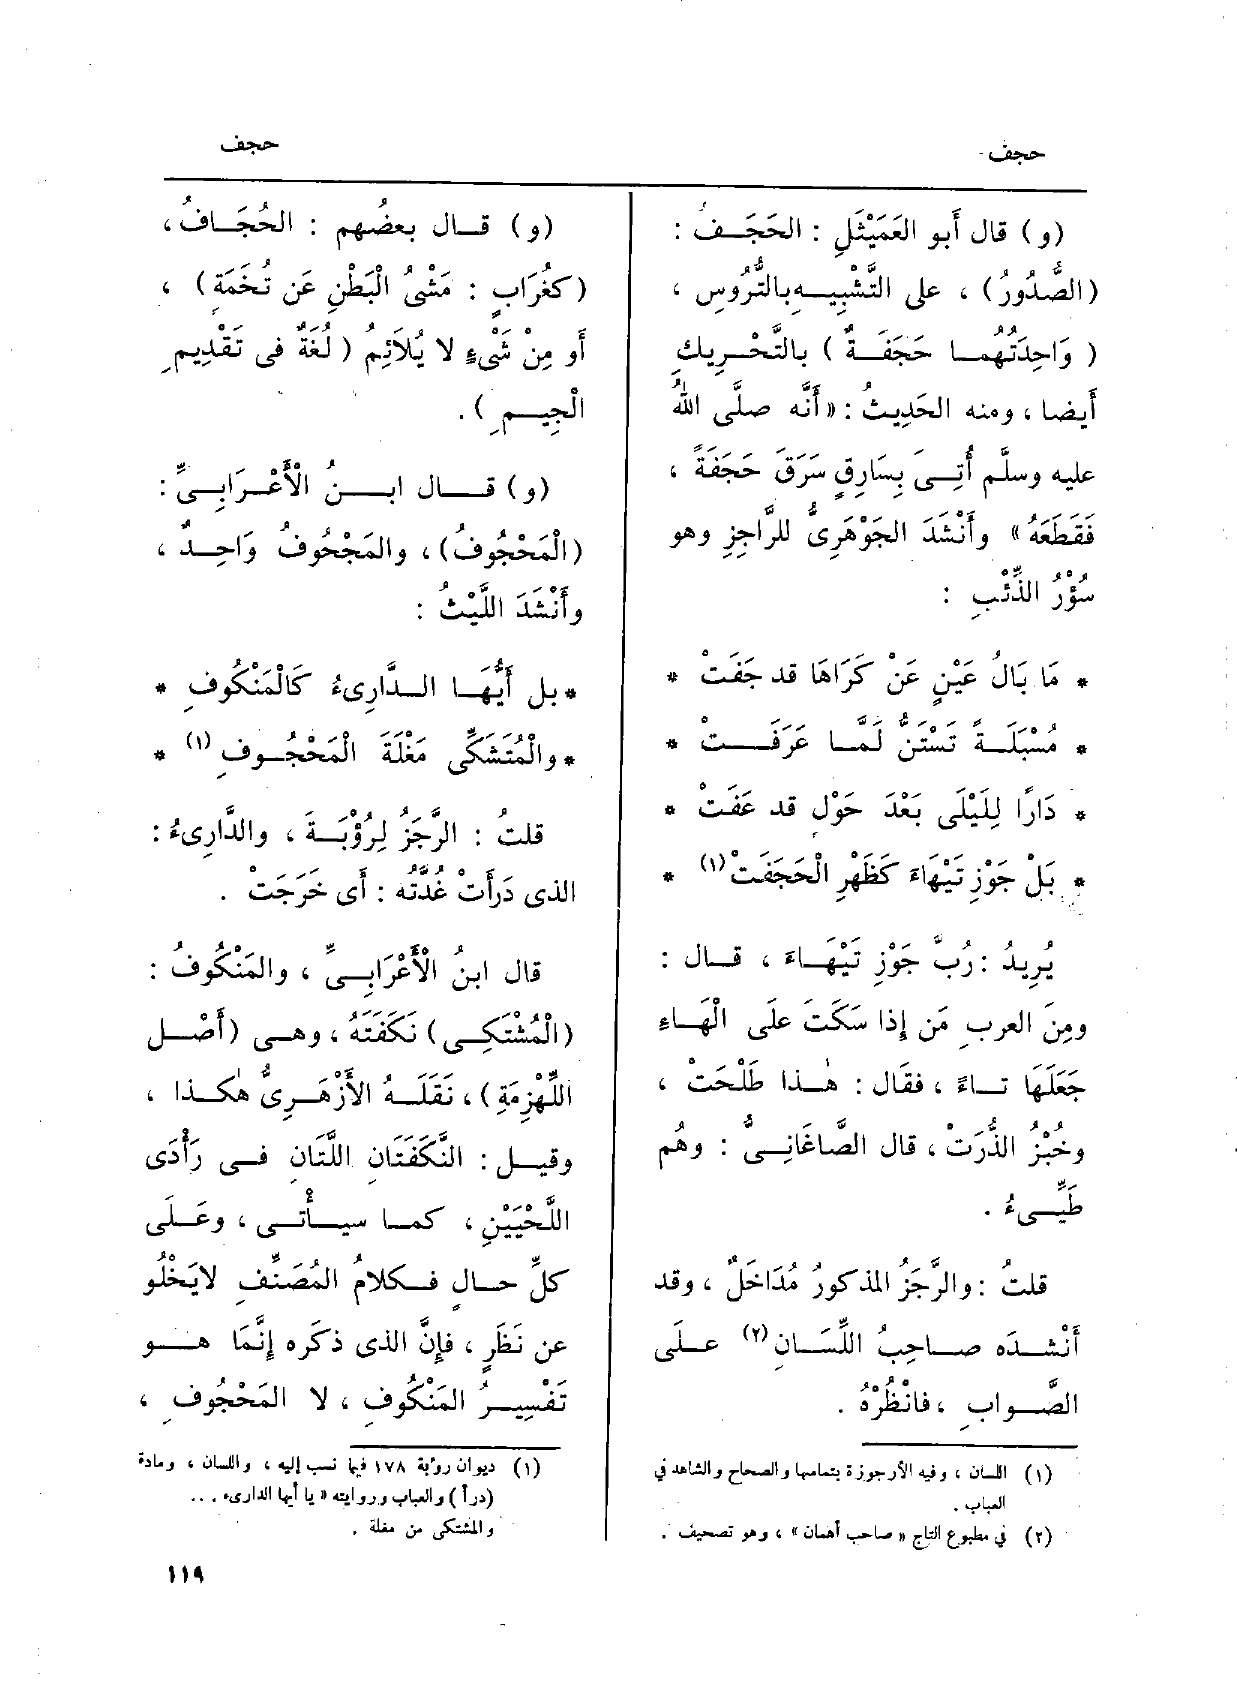 حجف
حجف
(و) قال أَبو العَمَيْثَلِ : الحَجَفُ :
(الصُّدُورُ) ، على التَّشْبِيهِ بالتُّرُوسِ ،
( وَاحِدَتُهُما حَجَفَةٌ ) بالتَّحْرِيكِ
أَيضا ، ومنه الحَدِيثُ : « أَنَّه صلَّى اللهُ
عليه وسلَّم أُتِىَ بِسَارِقٍ سَرَقَ حَجَفَةً ،
فَقَطَعَهُ» وأَنْشَدَ الجَوْهَرِىُّ للرَّاجِزِ وهو
سُؤْرُ الذِّئْبِ :
* مَا بَالُ عَيْنٍ عَنْ كَرَاهَا قد جَفَتْ *
* مُسْبَلَةً تَسْتَنُّ لَمَّا عَرَفَتْ *
* دَارًا لِلَيْلَى بَعْدَ حَوْلٍ قد عَفَتْ *
* بَلْ جَوْزِ تَيْهَاءَ كَظَهْرِ الْحَجَفَتْ (١) *
يُرِيدُ : رُبَّ جَوْزِ تَيْهَاءَ ، قال :
ومِنَ العربِ مَن إِذا سَكَتَ علَى الْهَاءِ
جَعَلَهَا تاءً ، فقَال : هٰذا طَلْحَتْ ،
وخُبْزُ الذُّرَتْ ، قال الصَّاغَانِىُّ : وهُم
طَيِّىءُ .
قلتُ : والرَّجَزُ المذكورُ مُدَاخَلٌ ، وقد
أَنْشَدَه صاحِبُ اللِّسَانِ (٢) علَى
الصَّوابِ ، فانْظُرْهُ .
(١) اللسان ، وفيه الأرجوزة بتمامها والصحاح والشاهد في
العباب .
(٢) في مطبوع التاج « صاحب أهمان » ، وهو تصحيف .
(و) قال بعضُهم : الحُجَافُ ،
(كغُرَابٍ : مَشْىُ الْبَطْنِ عَن تُخَمَةٍ) ،
أَو مِنْ شَىْءٍ لا يُلائِمُ ( لُغَةٌ فى تَقْدِيمِ
الْجِيمِ ) .
(و) قال ابنُ الأَعْرَابِىِّ :
(الْمَحْجُوفُ) ، والمَجْحُوفُ وَاحِدٌ ،
وأَنْشَدَ اللَّيْثُ :
* بل أَيُّهَا الدَّارِىءُ كَالْمَنْكُوفِ *
* والْمُتَشَكِّى مَغْلَةَ الْمَحْجُوفِ (١) *
قلتُ : الرَّجَزُ لِرُؤْبَةَ ، والدَّارِىءُ :
الذى دَرَأَتْ غُدَّتُه : أَى خَرَجَتْ .
قال ابنُ الأَعْرَابِىِّ ، والمَنْكُوفُ :
(الْمُشْتَكِى) نَكَفَتَهُ ، وهى (أَصْل
اللِّهْزِمَةِ) ، نَقَلَهُ الأَزْهَرِىُّ هٰكذا ،
وقيل : النَّكَفَتَانِ اللَّتَانِ فى رَأْدَىِ
اللَّحْيَيْنِ ، كما سيأْتى ، وعَلَى
كلِّ حالٍ فكلامُ المُصَنِّفِ لايَخْلُو
عن نَظَرٍ ، فإِنَّ الذى ذكَره إِنَّمَا هو
تَفْسِيرُ المَنْكُوفِ ، لا المَحْجُوفِ ،
(١) ديوان رؤبة ١٧٨ فيما نسب إليه ، واللسان ، ومادة
(درأ) والعباب وروايته « يا أيها الدارىء ...
والمشتكى من مغلة .
١١٩